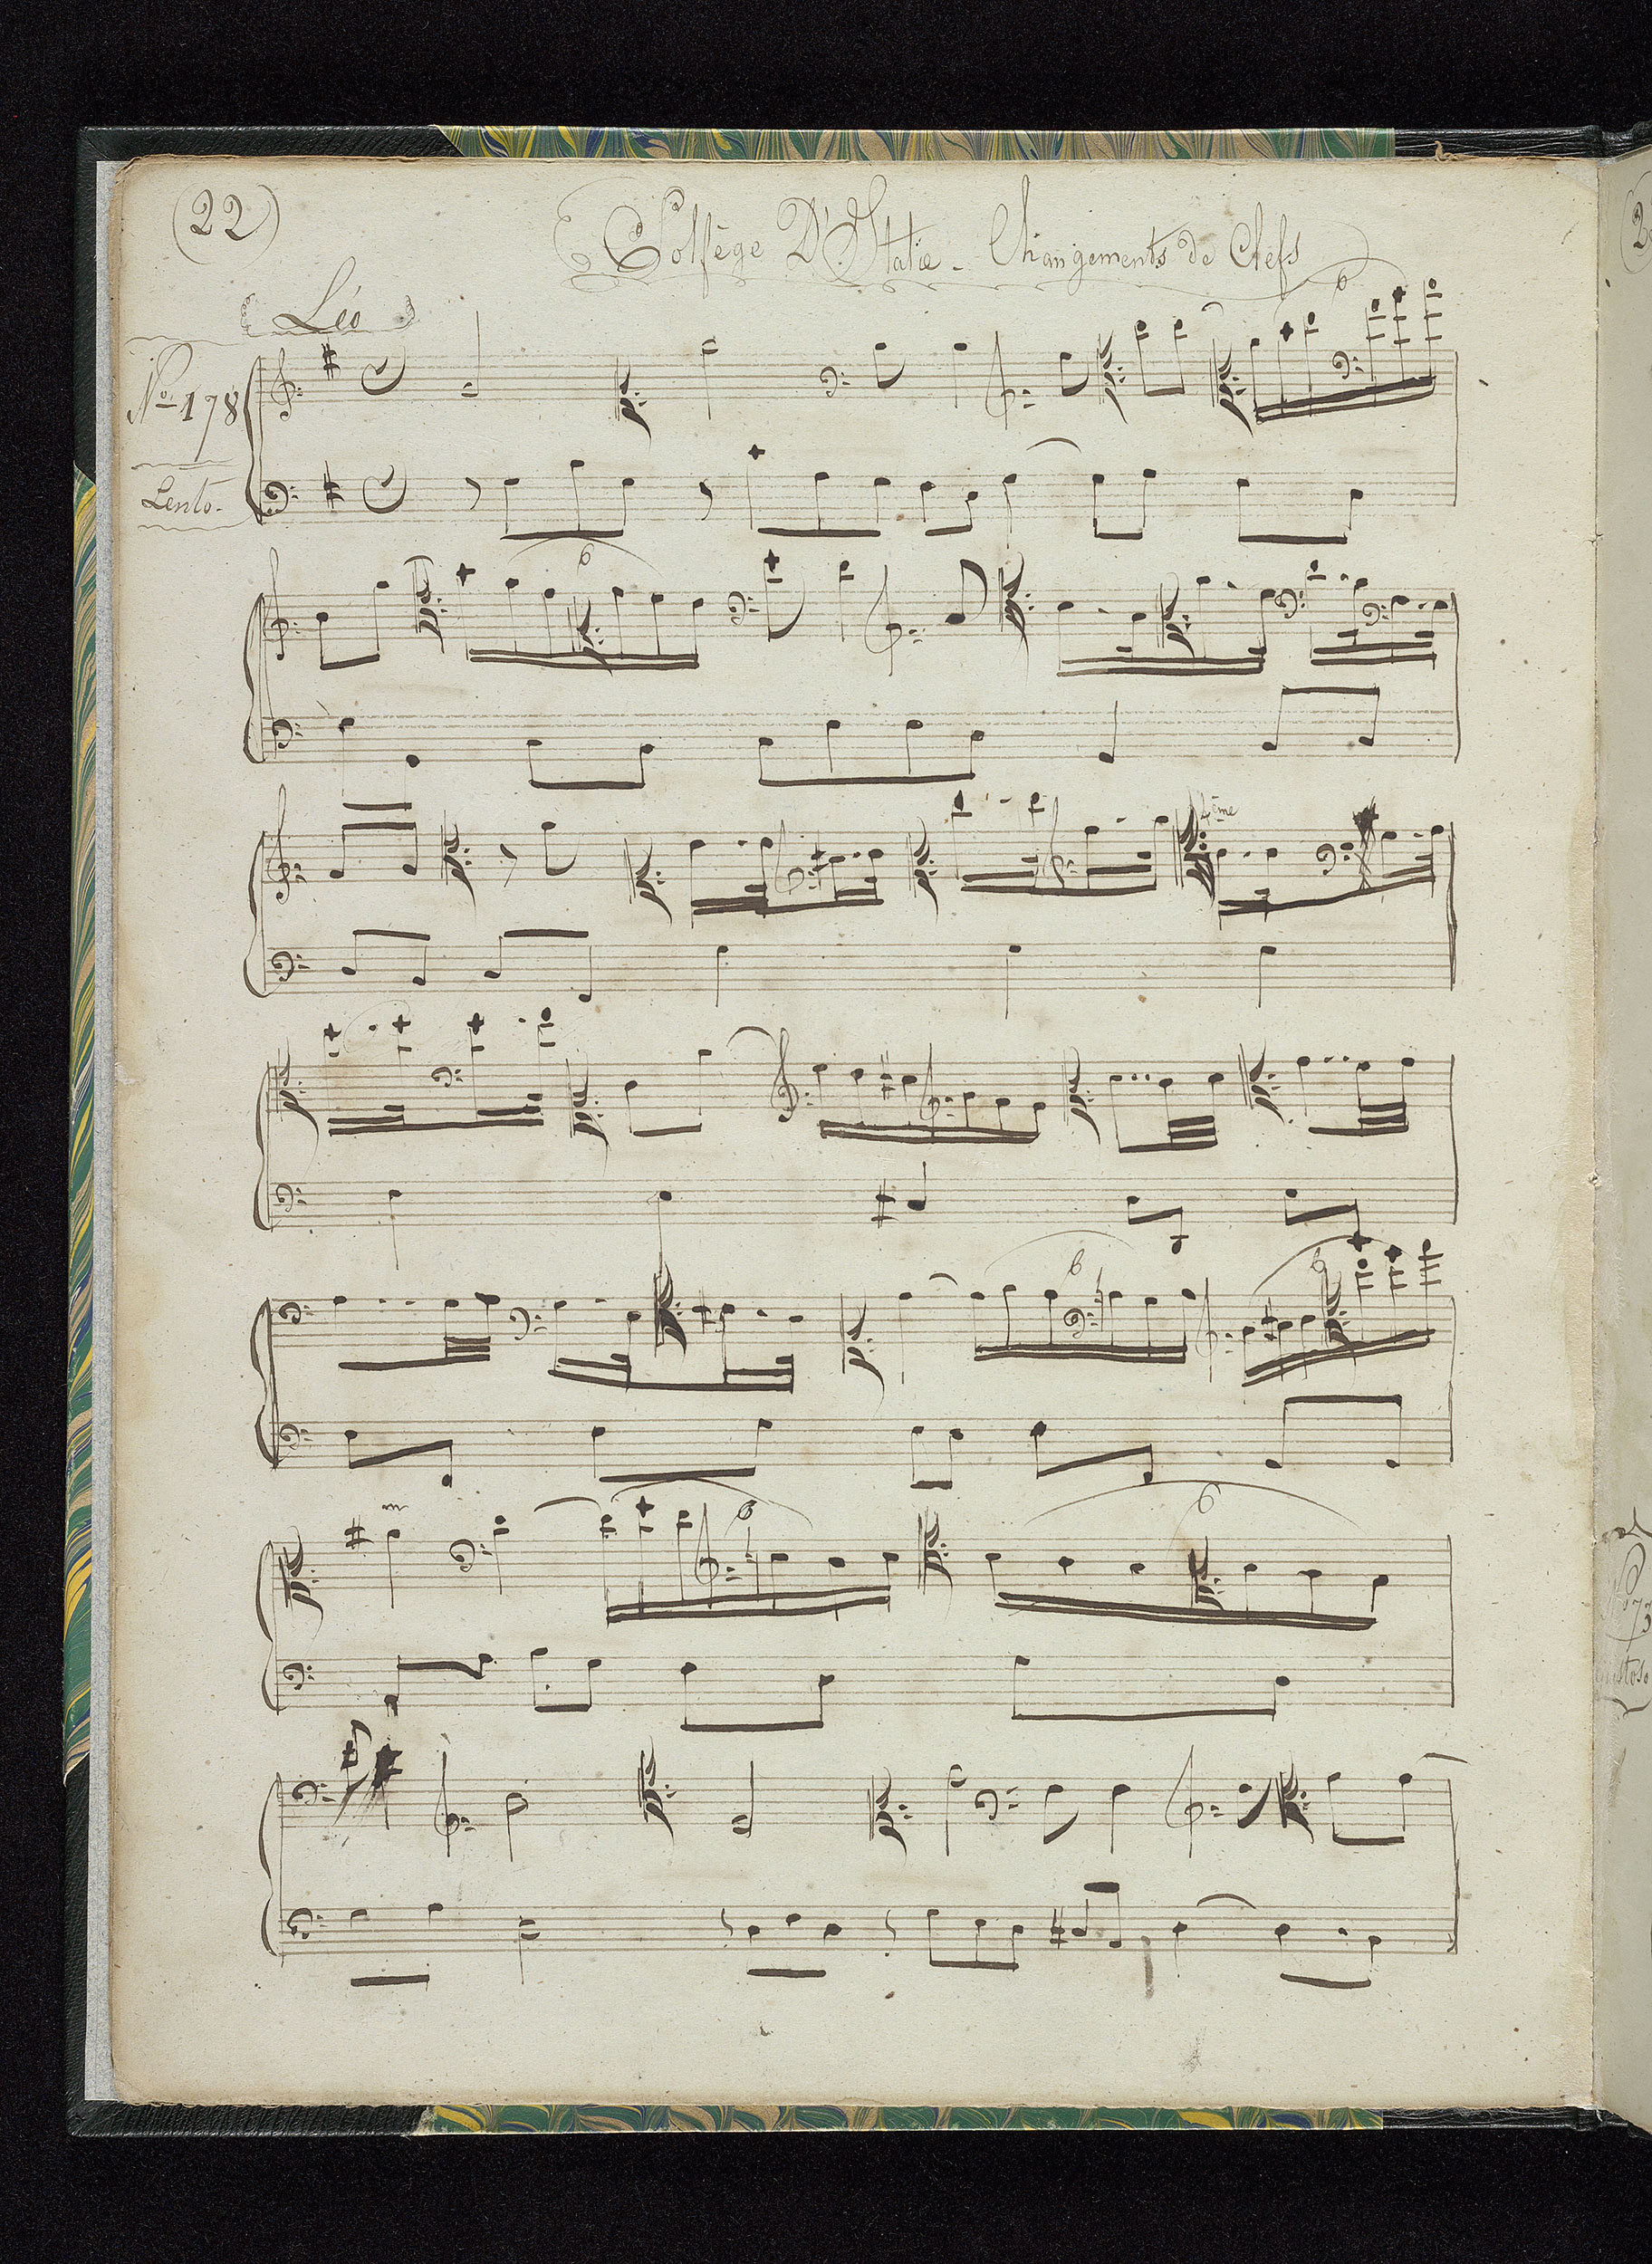 (22)
Solfège D'Italie - Changements de Clefs
Léo
No 178
Lento.
6
6
4ème
6
6
6
6